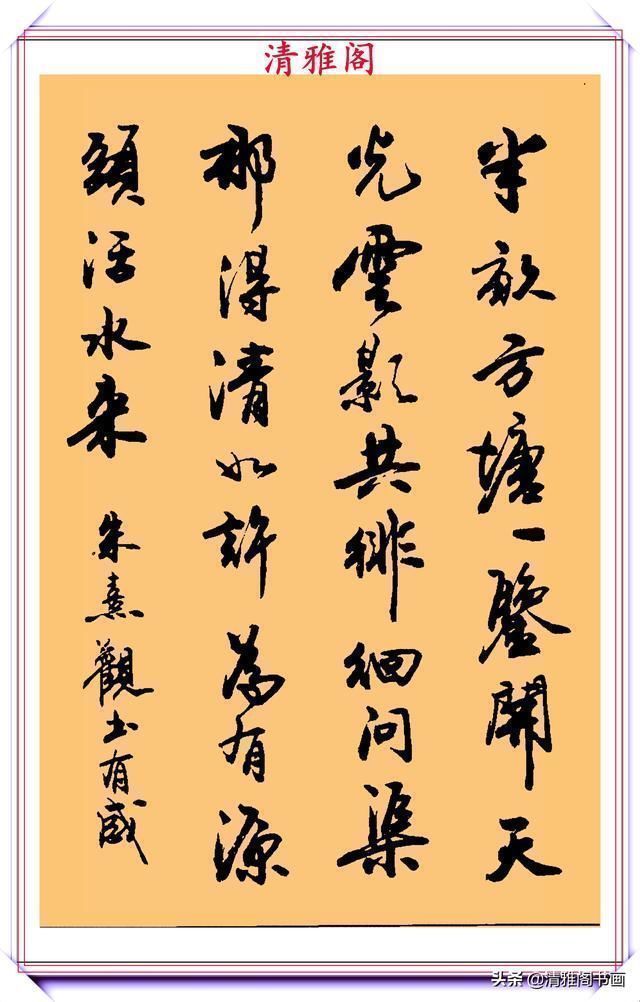 清雅阁
半畝方塘一鑒開天
光雲影共徘徊問渠
那得清如許為有源
頭活水來
朱熹觀书有感
头条@清雅阁书画